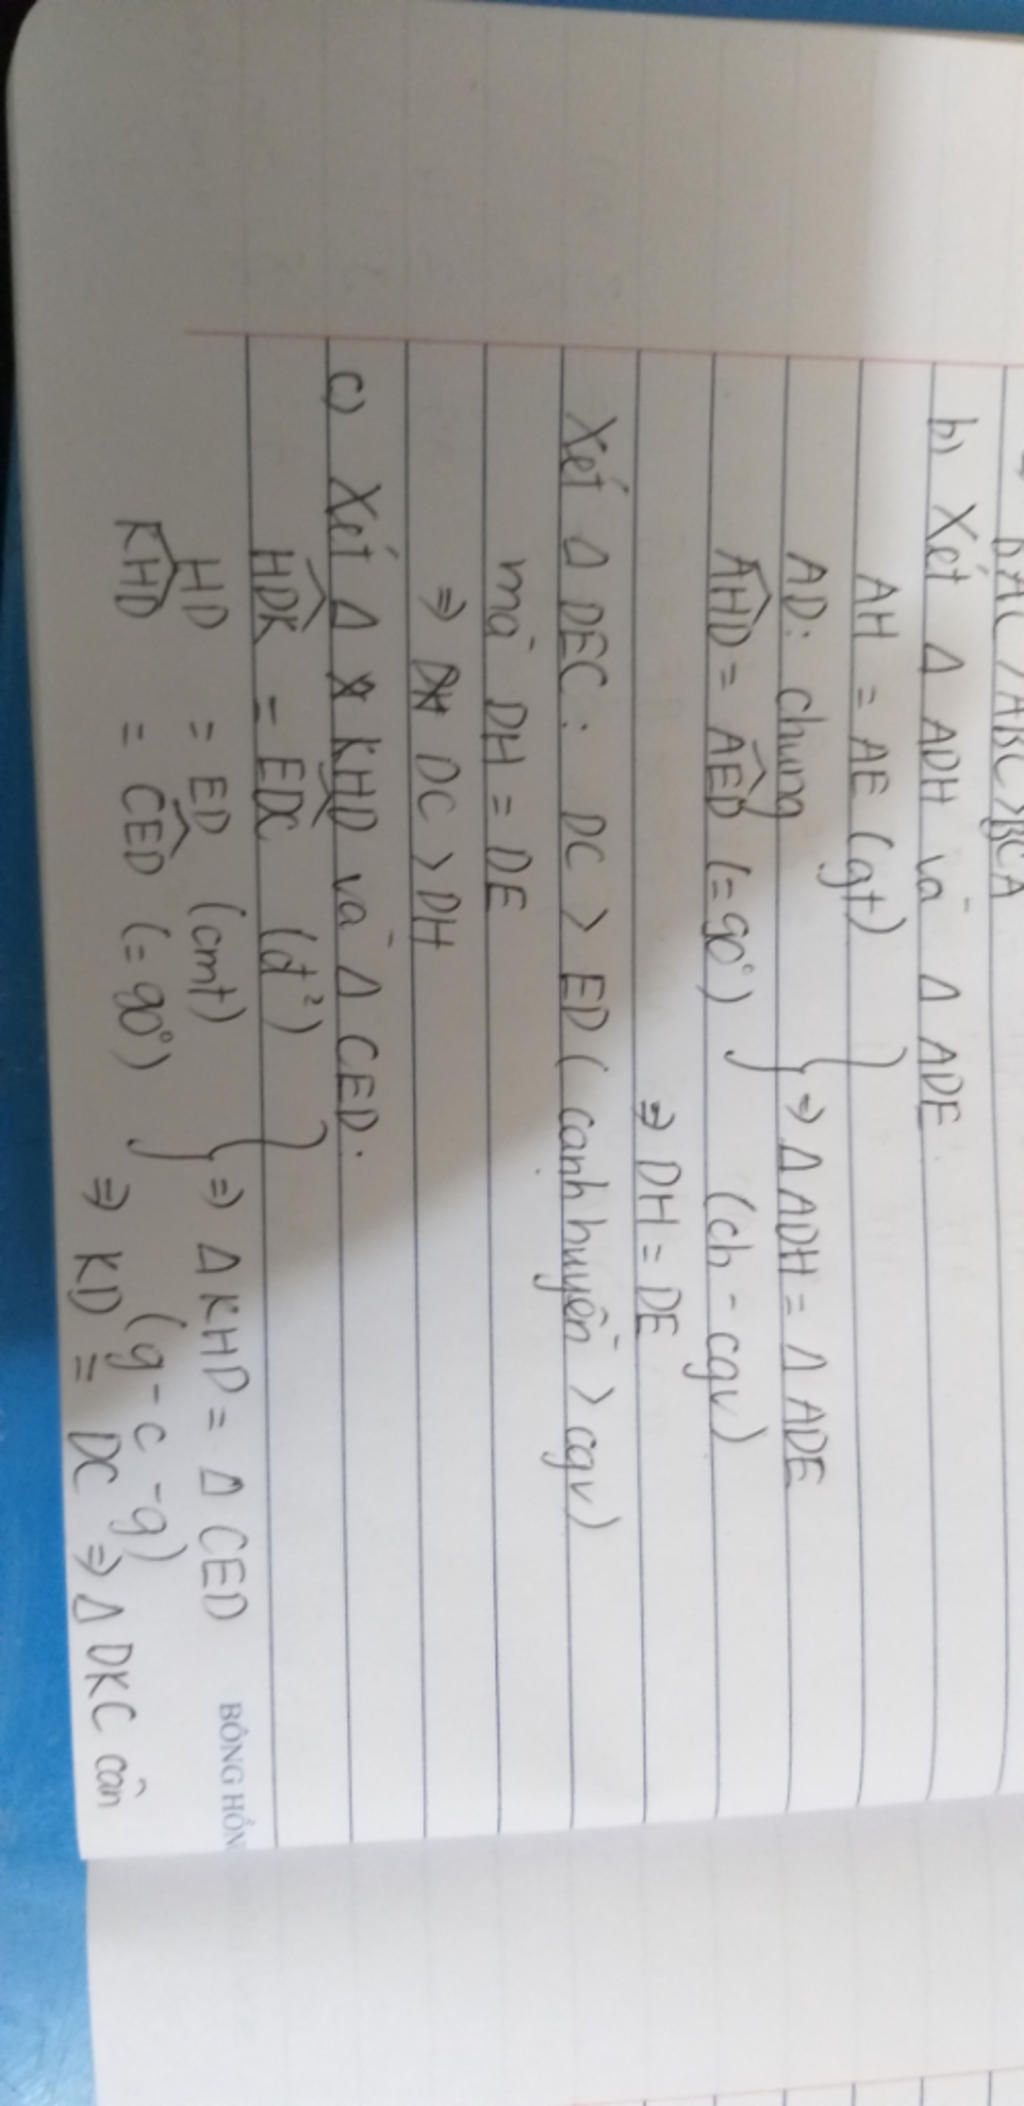 BAC > ABC > BCA
b) Xét Δ ADH và Δ ADE
AH = AE (gt)
AD: chung
⇒ Δ ADH = Δ ADE
AHD = AED (= 90°)
(ch - cgv)
⇒ DH = DE
Xét Δ DEC: DC > ED (cạnh huyền > cgv)
mà DH = DE
⇒ DC > DH
c) Xét Δ KHD và Δ CED.
HDK = EDC (đ²)
HD = ED (cmt)
⇒ Δ KHD = Δ CED
KHD = CED (= 90°)
(g - c - g)
⇒ KD = DC ⇒ Δ DKC cân
BÔNG HỒN